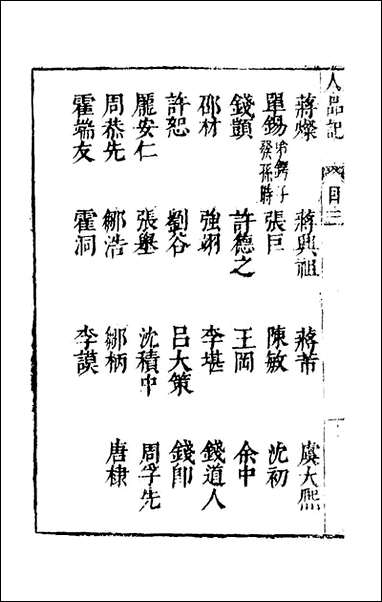 人品記 目三
蔣燦 蔣興祖 蔣芾 虞大熙
單錫 弟鍔子發孫時 張巨 陳敏 沈初
錢顗 許德之 王岡 余中
邵材 強翊 李堪 錢道人
許恕 劉谷 呂大策 錢卽
龐安仁 張舉 沈積中 周孚先
周恭先 鄒浩 鄒柄 唐棣
霍端友 霍洞 李謨